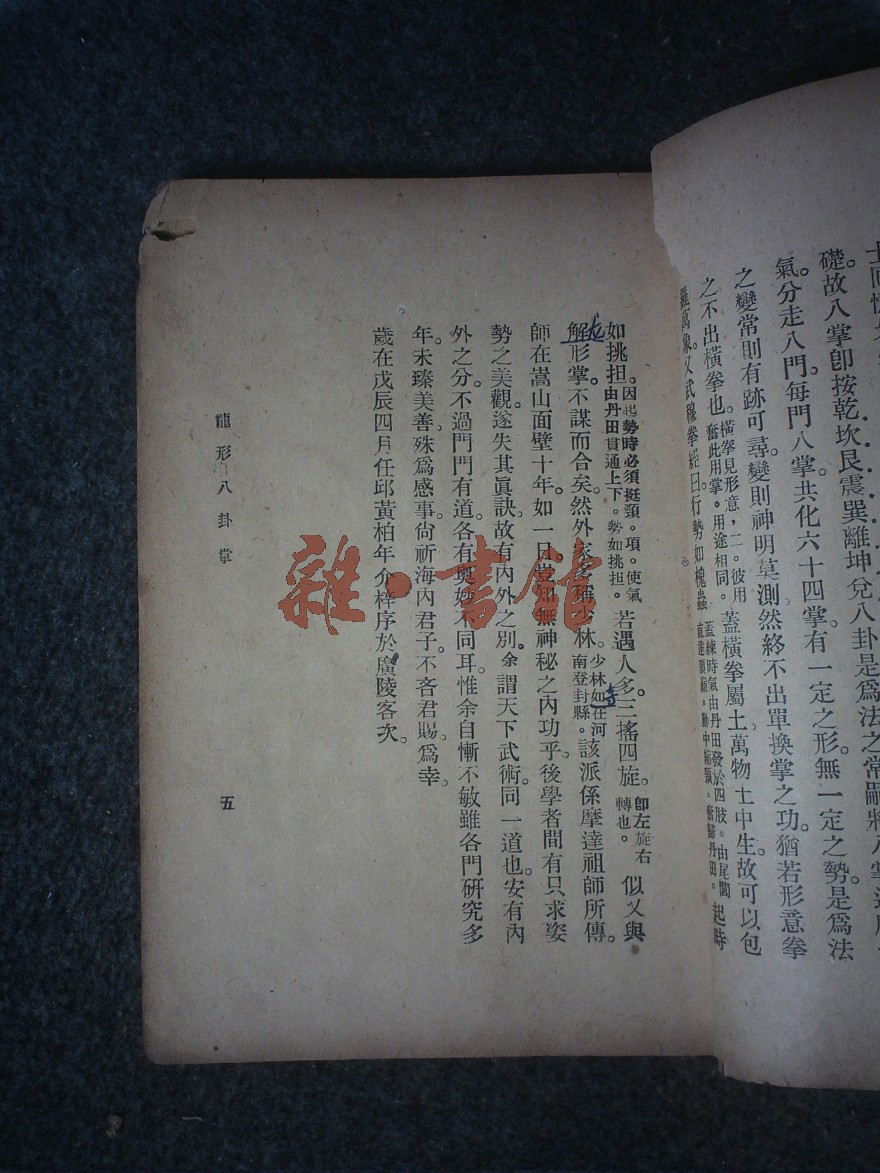 礎。故八掌卽按乾坎艮震巽離坤兌八卦是爲法之常嗣將八掌
氣。分走八門。每門八掌。共化六十四掌。有一定之形。無一定之勢。是爲法
之變常則有跡可尋。變則神明莫測然終不出單換掌之功。猶若形意拳
之不出橫拳也。橫拳見形意,二。彼用奮此用掌。用途相同。蓋橫拳屬土。萬物土中生。故可以包
羅萬像。又武穆拳經曰。行勢如槐蟲蓋練時氣由丹田發於四肢。由尾閭 起時
如挑担。因起勢時必須挺頸。項。使氣由丹田貫通上下。勢如挑担。若遇人多。三搖四旋。卽左旋右轉也。似又與
解形掌。不謀而合矣。然外家多稱少林。少林如在河南登封縣。該派係摩達祖師所傳。
龙
寺
師在嵩山面壁十年。如一日。豈知無神秘之內功乎。後學者間有只求姿
勢之美觀。遂失其眞訣。故有內外之別。余謂天下武術。同一道也。安有內
外之分。不過門門有道。各有奧妙不同耳。惟余自慚不敏。雖各門硏究多
年。未臻美善。殊爲感事。尙祈海內君子。不吝君賜。爲幸。
歲在戊辰四月任邱黃柏年介梓序於廣陵客次。
龍形八卦掌
五
雜·書館